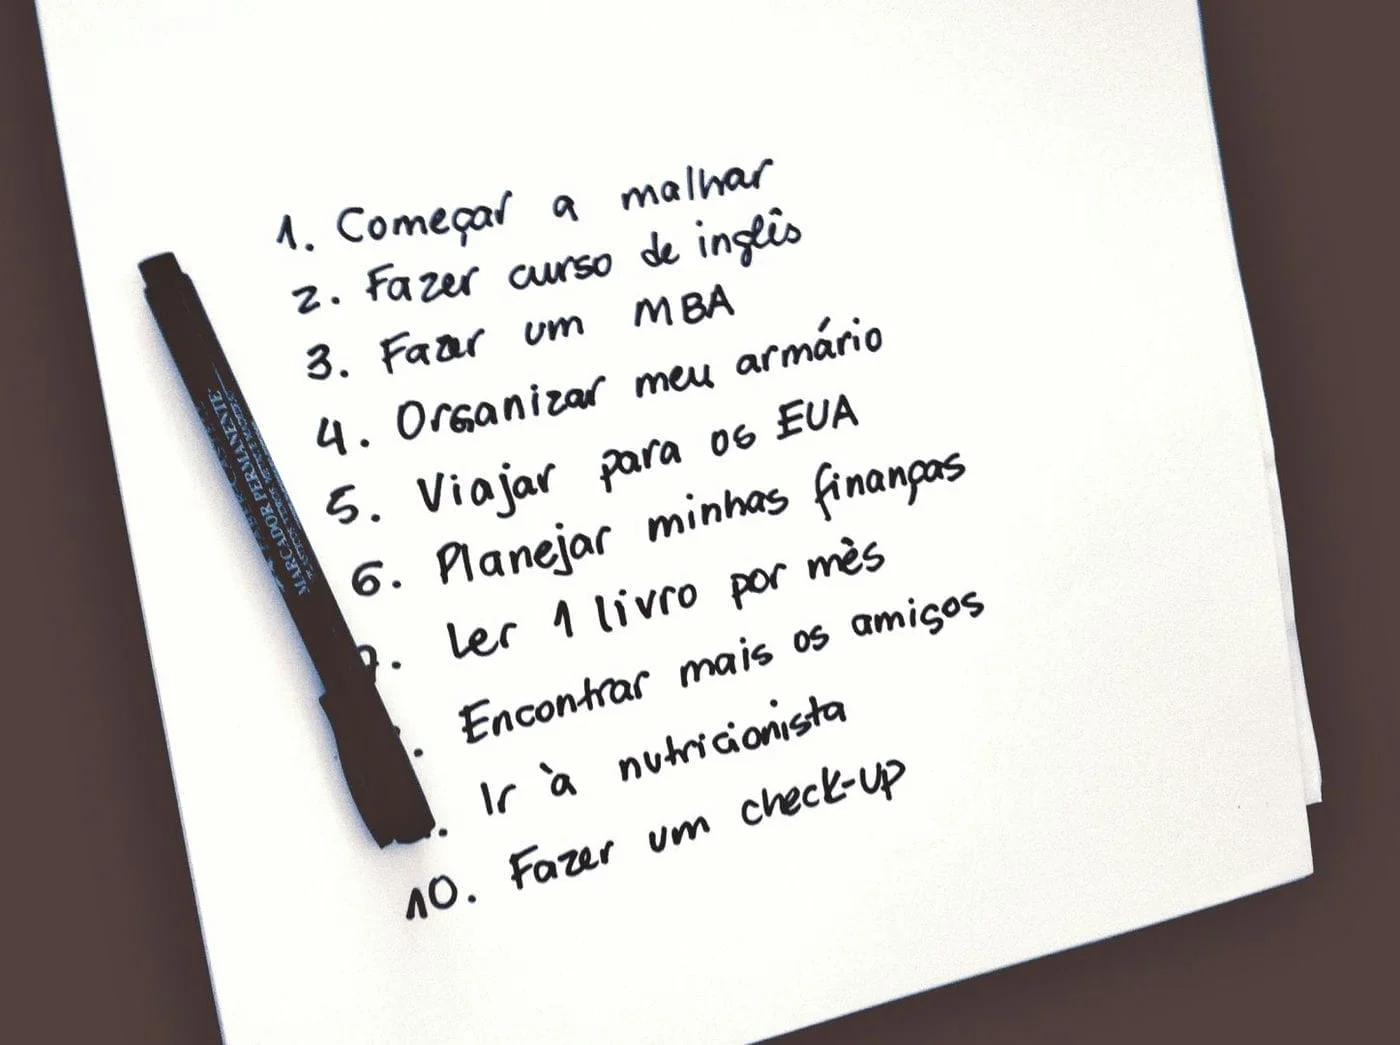 1. Começar a malhar
2. Fazer curso de inglês
3. Fazer um MBA
4. Organizar meu armário
5. Viajar para os EUA
6. Planejar minhas finanças
7. Ler 1 livro por mês
. Encontrar mais os amigos
. Ir à nutricionista
10. Fazer um check-up
MARCADOR PERMANENTE